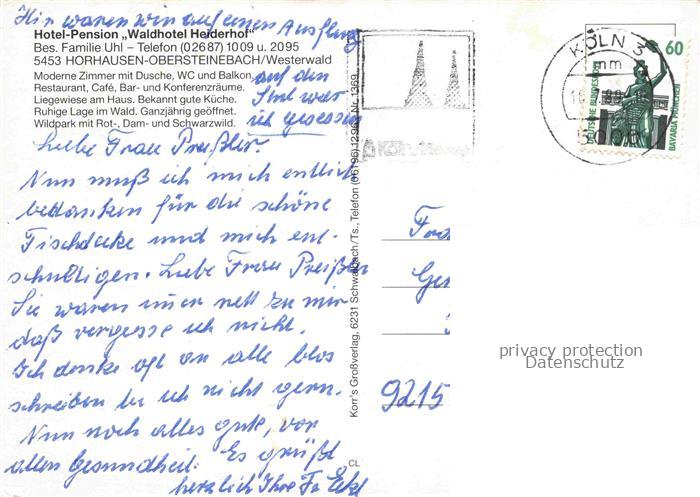 Hir waren wir auf einen Ausflug
Hotel-Pension „Waldhotel Heiderhof"
Bes. Familie Uhl – Telefon (02687) 1009 u. 2095
5453 HORHAUSEN-OBERSTEINEBACH/Westerwald
Moderne Zimmer mit Dusche, WC und Balkon.
Restaurant, Café, Bar- und Konferenzräume.
Liegewiese am Haus. Bekannt gute Küche.
Ruhige Lage im Wald. Ganzjährig geöffnet.
Wildpark mit Rot-, Dam- und Schwarzwild.
auf den
Stul war
ich gesessen
Liebe Frau Preißler.
Nun muß ich mich entlich
bedanken für die schöne
Tischdecke und mich ent-
schuldigen. Liebe Frau Preißler
Sie waren imer nett zu mir
daß vergesse ich nicht.
Ich denke oft an alle blos
schreiben tu ich nicht gern.
Nun noch alles gute, vor
allen Gesundheit. Es grüßt
herzlich Ihre Fr
Korr's Großverlag, 6231 Schwalbach/Ts., Telefon (06196) Nr. 1369
CL
KÖLN 3
mm
60
DEUTSCHE BUNDESPOST
BAVARIA MÜNCHEN
9215
privacy protection
Datenschutz